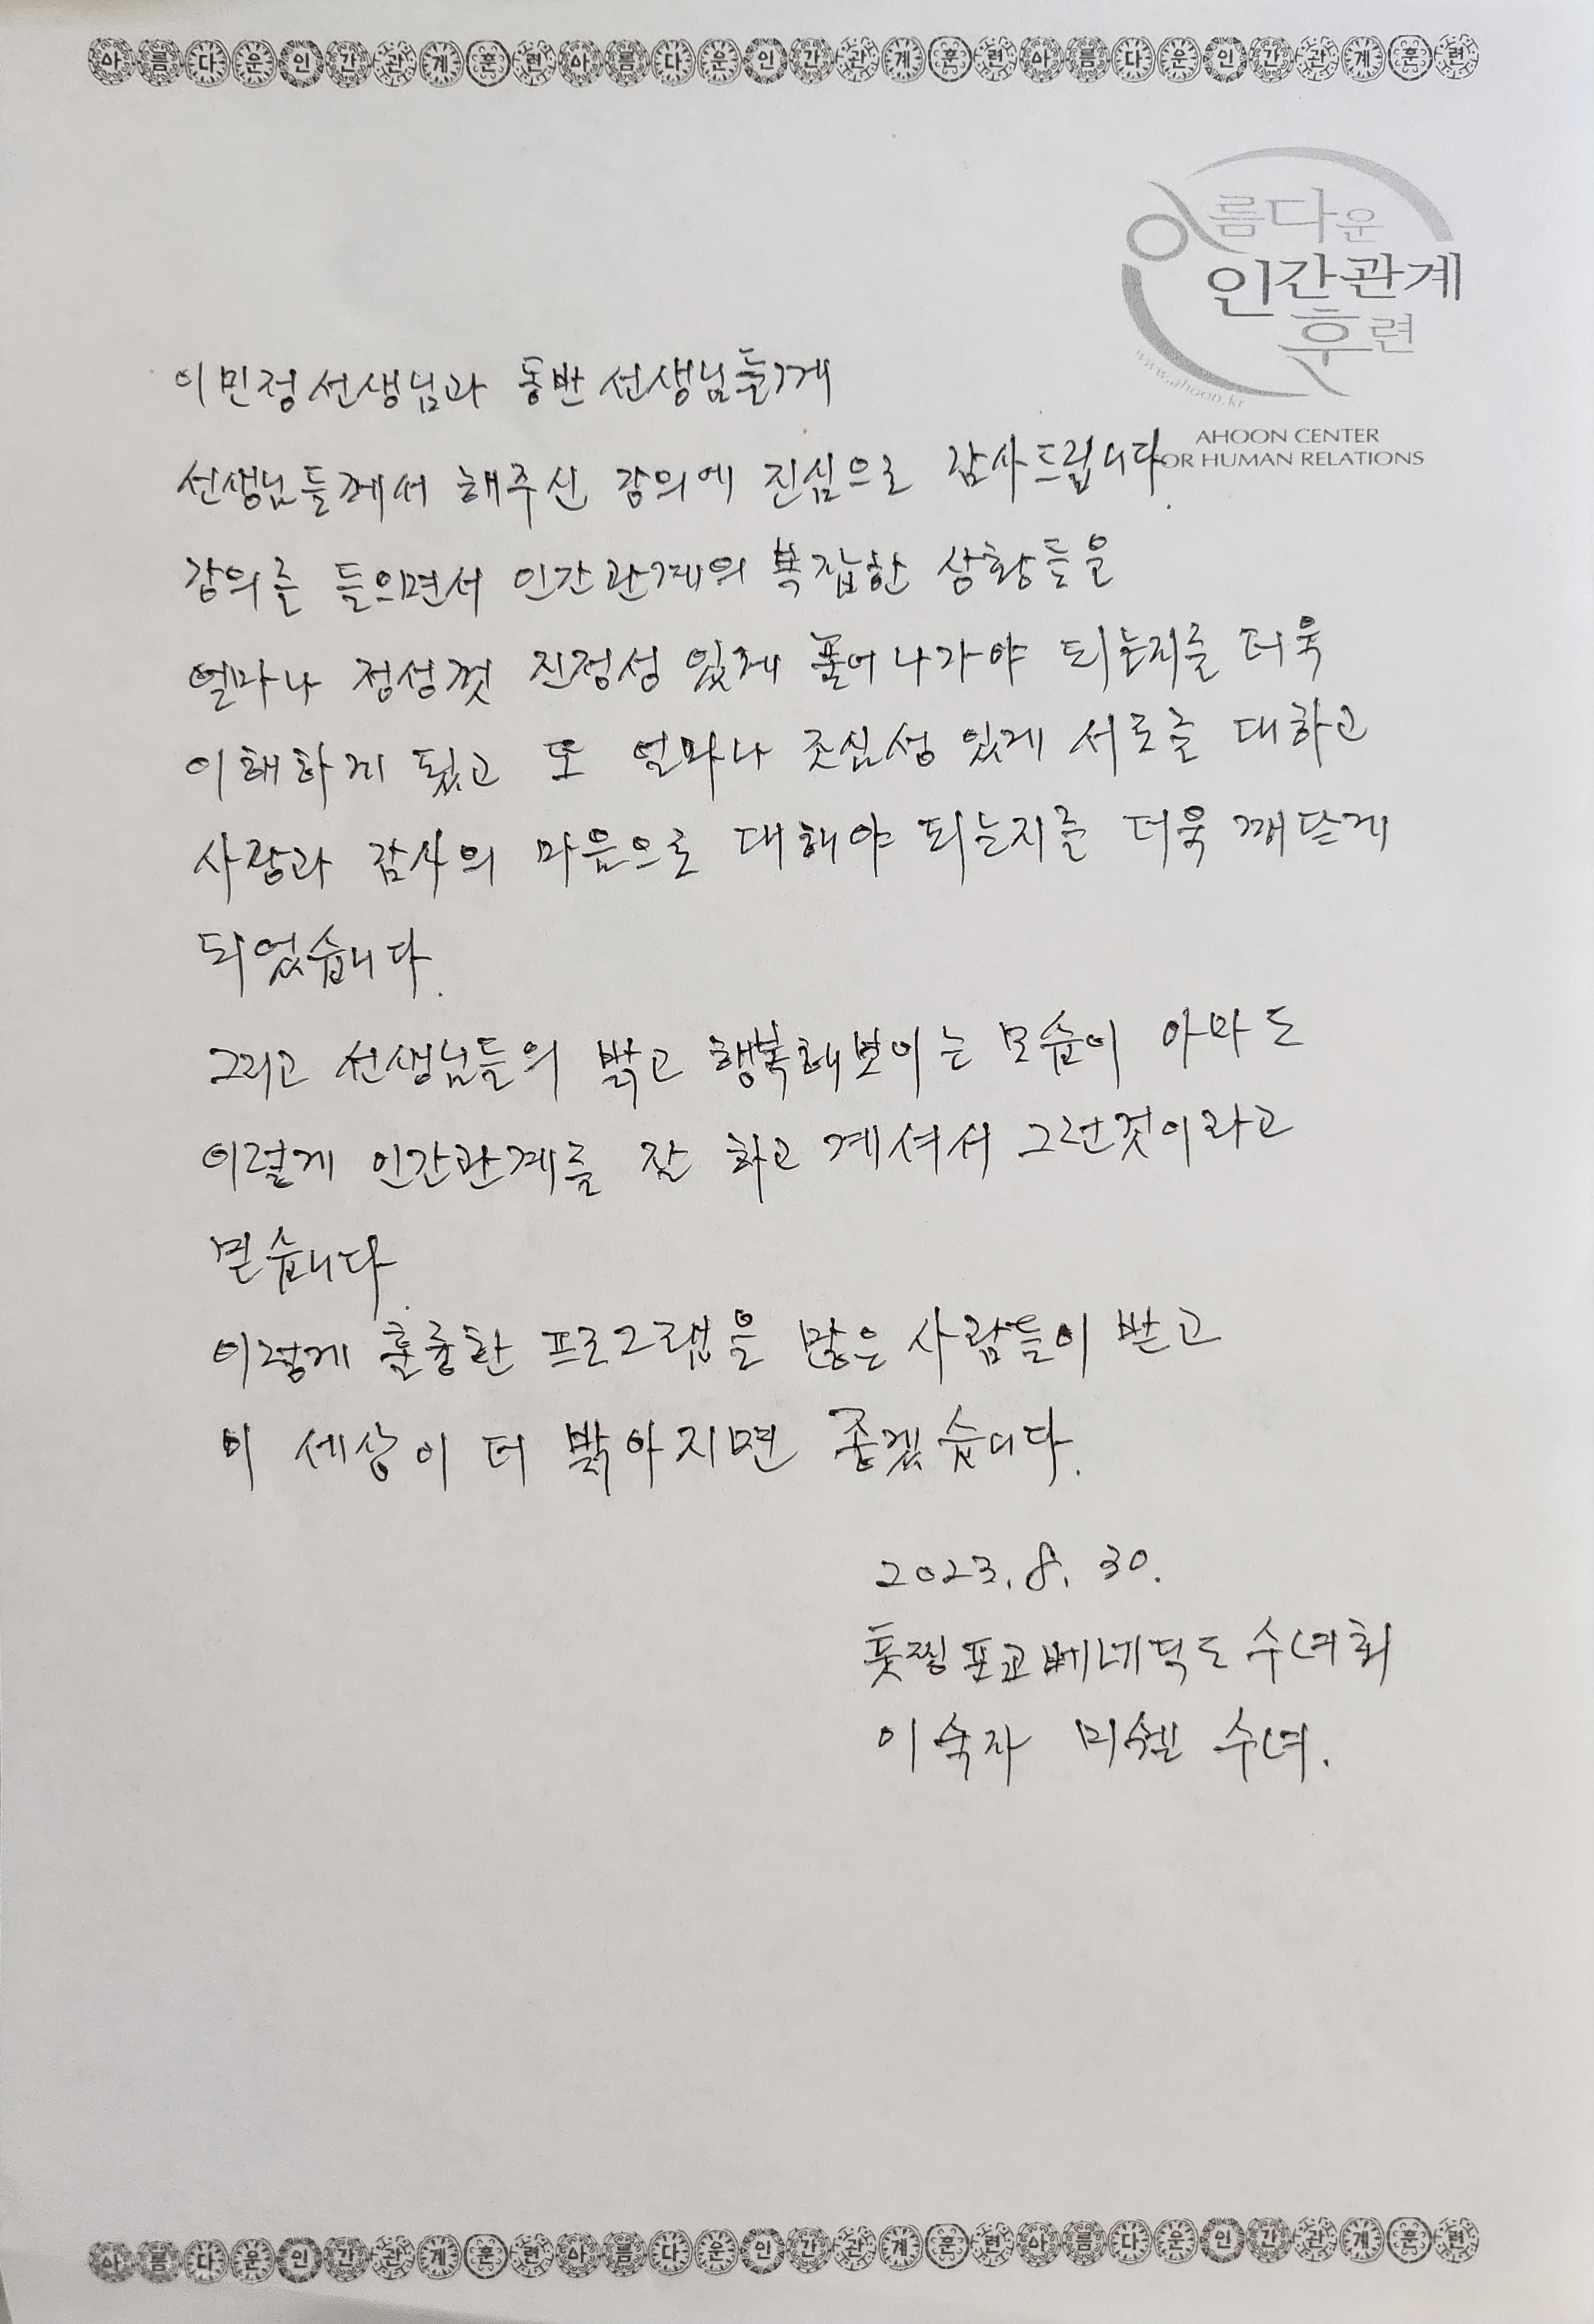 아름다운인간관계훈련아름다운인간관계훈련아름다운인간관계훈련
아름다운
인간관계
훈련
www.ahoon.kr
AHOON CENTER
FOR HUMAN RELATIONS
이민정선생님과 동반 선생님들께
선생님들께서 해주신 강의에 진심으로 감사드립니다.
강의를 들으면서 인간관계의 복잡한 상황들을
얼마나 정성껏 진정성 있게 풀어나가야 되는지를 더욱
이해하게 됬고 또 얼마나 조심성 있게 서로를 대하고
사랑과 감사의 마음으로 대해야 되는지를 더욱 깨닫게
되었습니다.
그리고 선생님들의 밝고 행복해보이는 모습이 아마도
이렇게 인간관계를 잘 하고 계셔서 그런것이라고
믿습니다.
이렇게 훌륭한 프로그램을 많은 사람들이 받고
이 세상이 더 밝아지면 좋겠습니다.
2023. 8. 30.
툿찡포교베네딕도 수녀회
이숙자 미쉘 수녀.
아름다운인간관계훈련아름다운인간관계훈련아름다운인간관계훈련